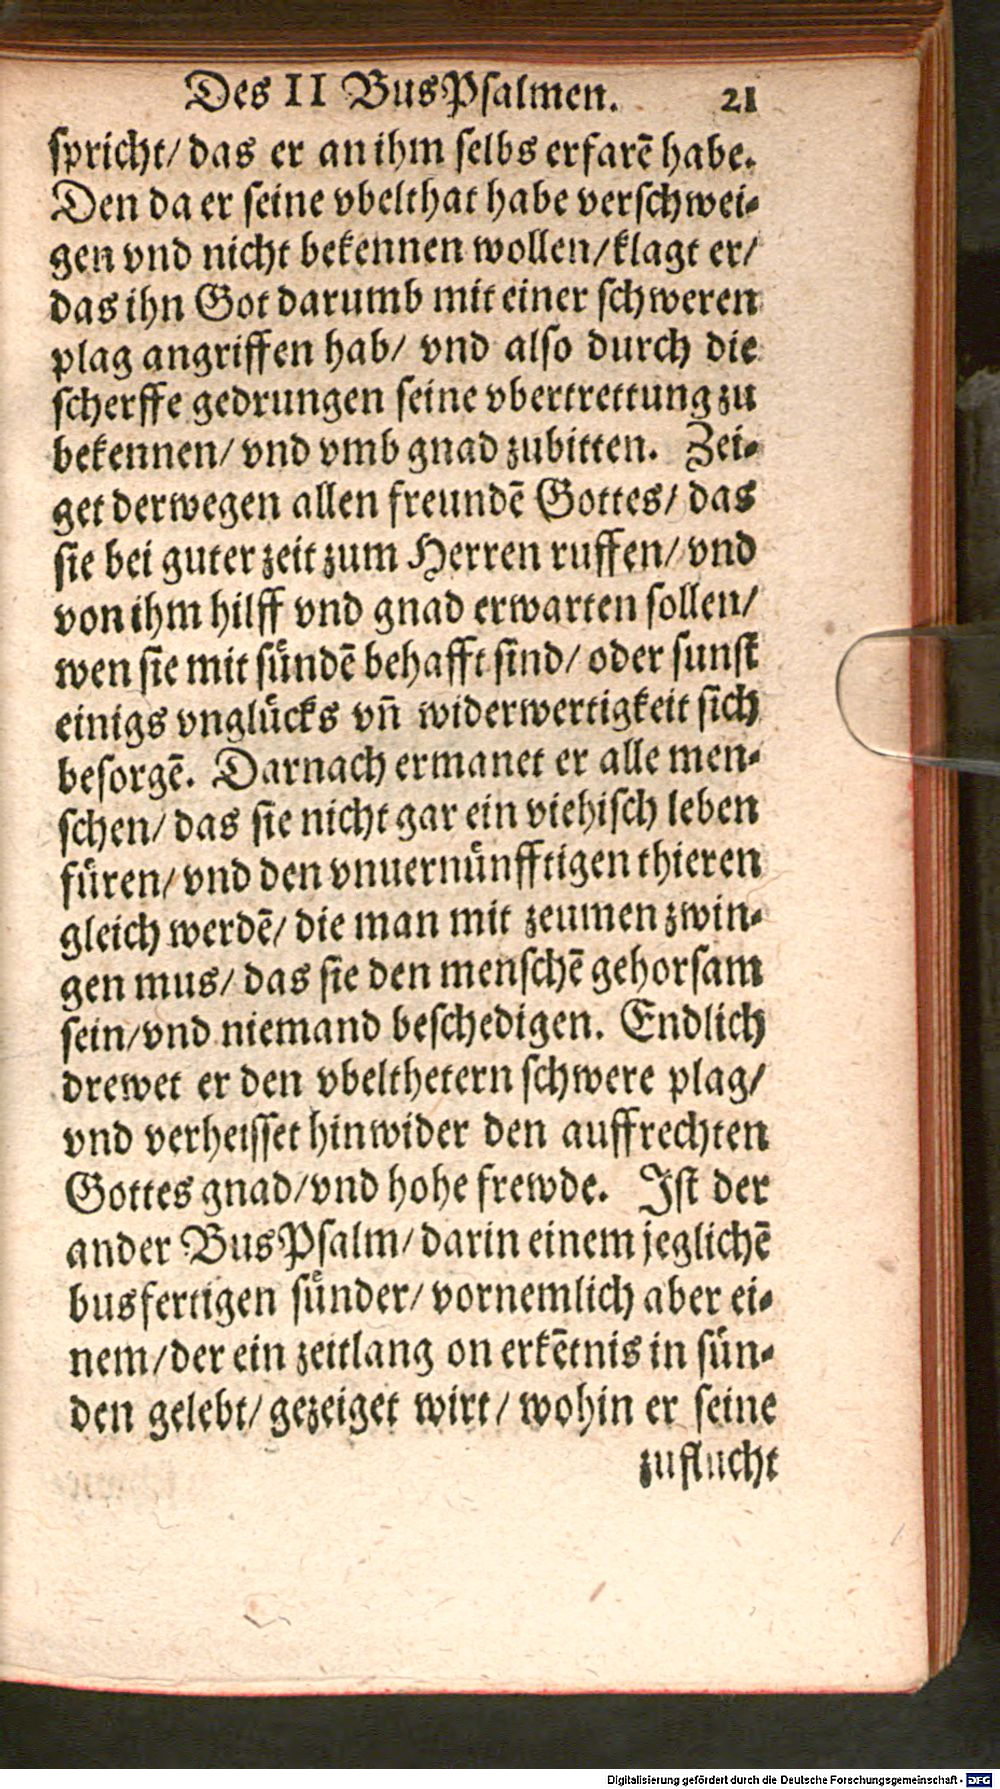 Des II BusPsalmen. 21
spricht/ das er an ihm selbs erfarē habe.
Den da er seine vbelthat habe verschwei-
gen vnd nicht bekennen wollen/klagt er/
das ihn Got darumb mit einer schweren
plag angriffen hab/ vnd also durch die
scherffe gedrungen seine vbertrettung zu
bekennen/ vnd vmb gnad zubitten. Zei-
get derwegen allen freundē Gottes/ das
sie bei guter zeit zum Herren ruffen/ vnd
von ihm hilff vnd gnad erwarten sollen/
wen sie mit sündē behafft sind/ oder sunst
einigs vnglücks vn̄ widerwertigkeit sich
besorgē. Darnach ermanet er alle men-
schen/ das sie nicht gar ein viehisch leben
füren/ vnd den vnuernünfftigen thieren
gleich werdē/ die man mit zeumen zwin-
gen mus/ das sie den menschē gehorsam
sein/vnd niemand beschedigen. Endlich
drewet er den vbelthetern schwere plag/
vnd verheisset hinwider den auffrechten
Gottes gnad/vnd hohe frewde. Ist der
ander BusPsalm/ darin einem jeglichē
busfertigen sünder/ vornemlich aber ei-
nem/der ein zeitlang on erkētnis in sün-
den gelebt/ gezeiget wirt/ wohin er seine
zuflucht
Digitalisierung gefördert durch die Deutsche Forschungsgemeinschaft - DFG